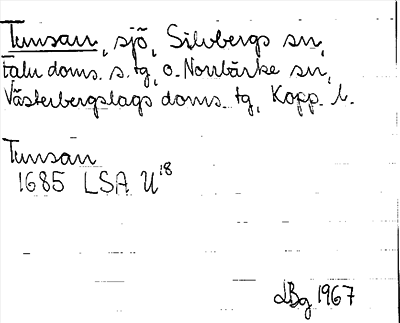 Tunsan, sjö, Silvbergs sn,
Falu doms. s. tg, o. Norrbärke sn,
Västerbergslags doms. tg, Kopp. l.
Tunsan
1685 LSA U18
LBg 1967